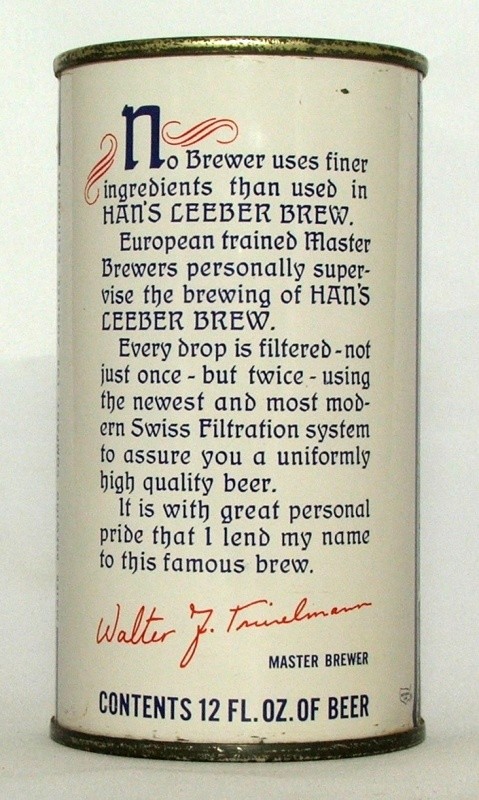 No Brewer uses finer
ingredients than used in
HAN'S LEEBER BREW.
European trained Master
Brewers personally super-
vise the brewing of HAN'S
LEEBER BREW.
Every drop is filtered-not
just once - but twice - using
the newest and most mod-
ern Swiss Filtration system
to assure you a uniformly
high quality beer.
It is with great personal
pride that I lend my name
to this famous brew.
Walter J.
MASTER BREWER
CONTENTS 12 FL. OZ. OF BEER